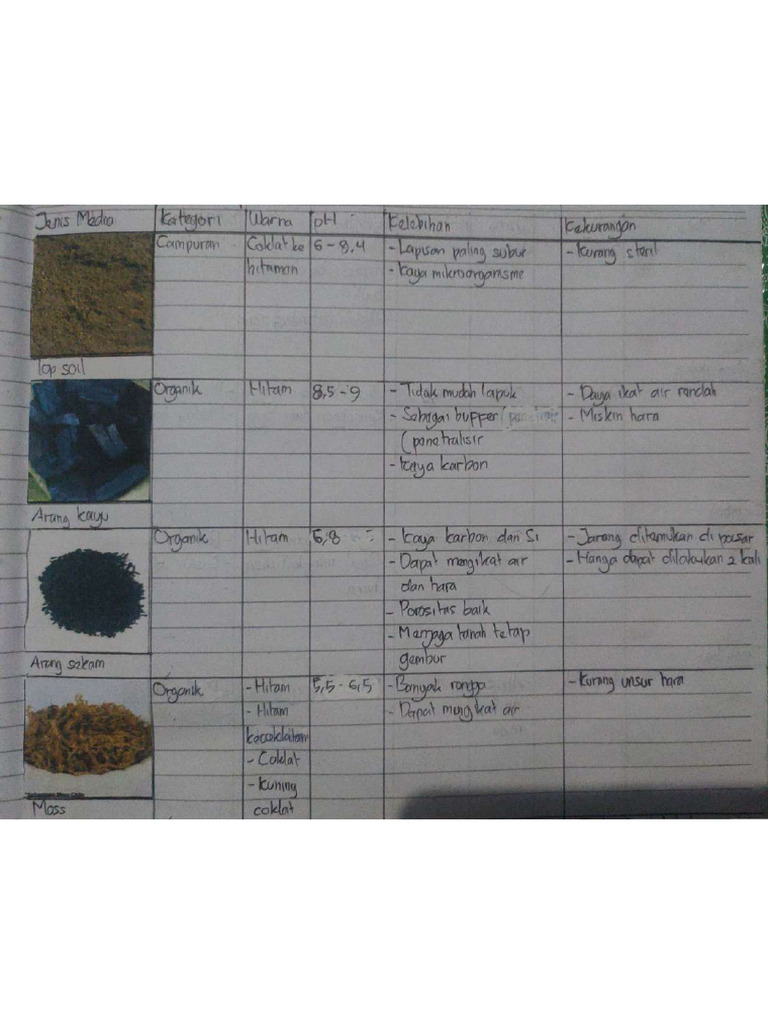 Jenis Media Kategori Warna pH Kelebihan Kekurangan
Campuran Coklat ke 6 - 8,4 - Lapisan paling subur - Kurang steril
hitaman - Kaya mikroorganisme
Top soil
Organik Hitam 8,5 - 9 - Tidak mudah lapuk - Daya ikat air rendah
- Sebagai bupper - Miskin hara
(penetralisir
- Kaya karbon
Arang kayu
Organik Hitam 6,8 - Kaya karbon dan Si - Jarang ditemukan di pasar
- Dapat mengikat air - Hanya dapat dilakukan 2 kali
dan hara
- Porositas baik
- Menjaga tanah tetap
Arang sekam gembur
Organik - Hitam 5,5 - 6,5 - Banyak rongga - Kurang unsur hara
- Hitam - Dapat mengikat air
kecoklatan
- Coklat
- Kuning
Moss coklat